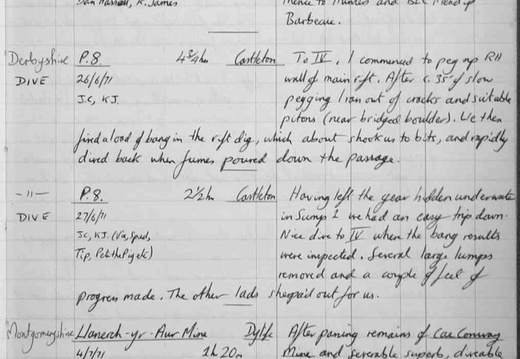 Dan Hassell, R. James
thence to Hunters and BEC Mendip
Barbecue.
Derbyshire P.8 4¾hr Castleton To IV, I commenced to peg up RH
DIVE 26/6/71 wall of main rift. After c. 35' of slow
JC, KJ. pegging I ran out of cracks and suitable
pitons (near bridged boulder). We then
fired a load of bang in the rift dig, which about shook us to bits, and rapidly
dived back when fumes poured down the passage.
-"- P.8. 2½hr Castleton Having left the gear hidden underwater
DIVE 27/6/71 in Sump 1 we had an easy trip down.
JC, KJ. (Vic, Spud, Nice dive to IV when the bang results
Tip, Pete the Pygek) were inspected. Several large lumps
removed and a couple of feet of
progress made. The other lads sherpa'd out for us.
Montgomeryshire Llanerch-yr-Aur Mine Dylife After passing remains of Cae Conroy
4/7/71 1h 20m Mine and several superb, diveable